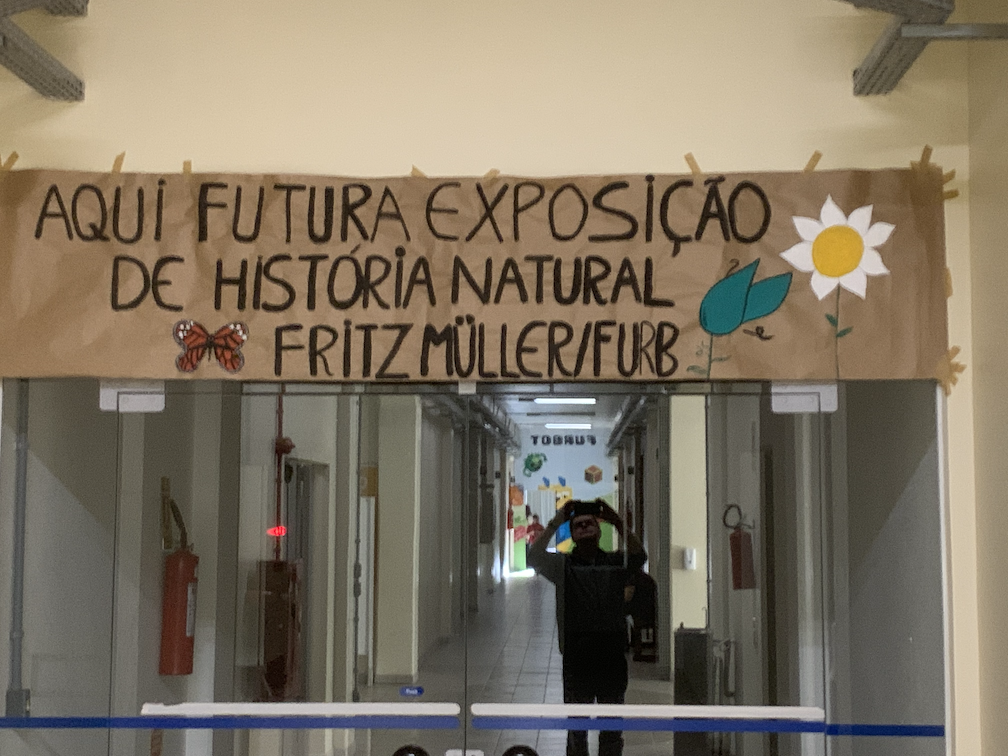 AQUI FUTURA EXPOSIÇÃO
DE HISTÓRIA NATURAL
FRITZ MÜLLER/FURB